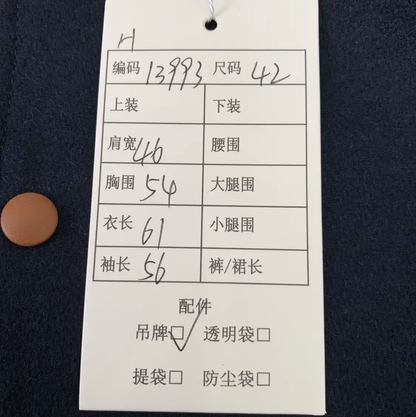 H
编码 13993 尺码 42
上装 下装
肩宽 46 腰围
胸围 54 大腿围
衣长 61 小腿围
袖长 56 裤/裙长
配件
吊牌☑ 透明袋□
提袋□ 防尘袋□